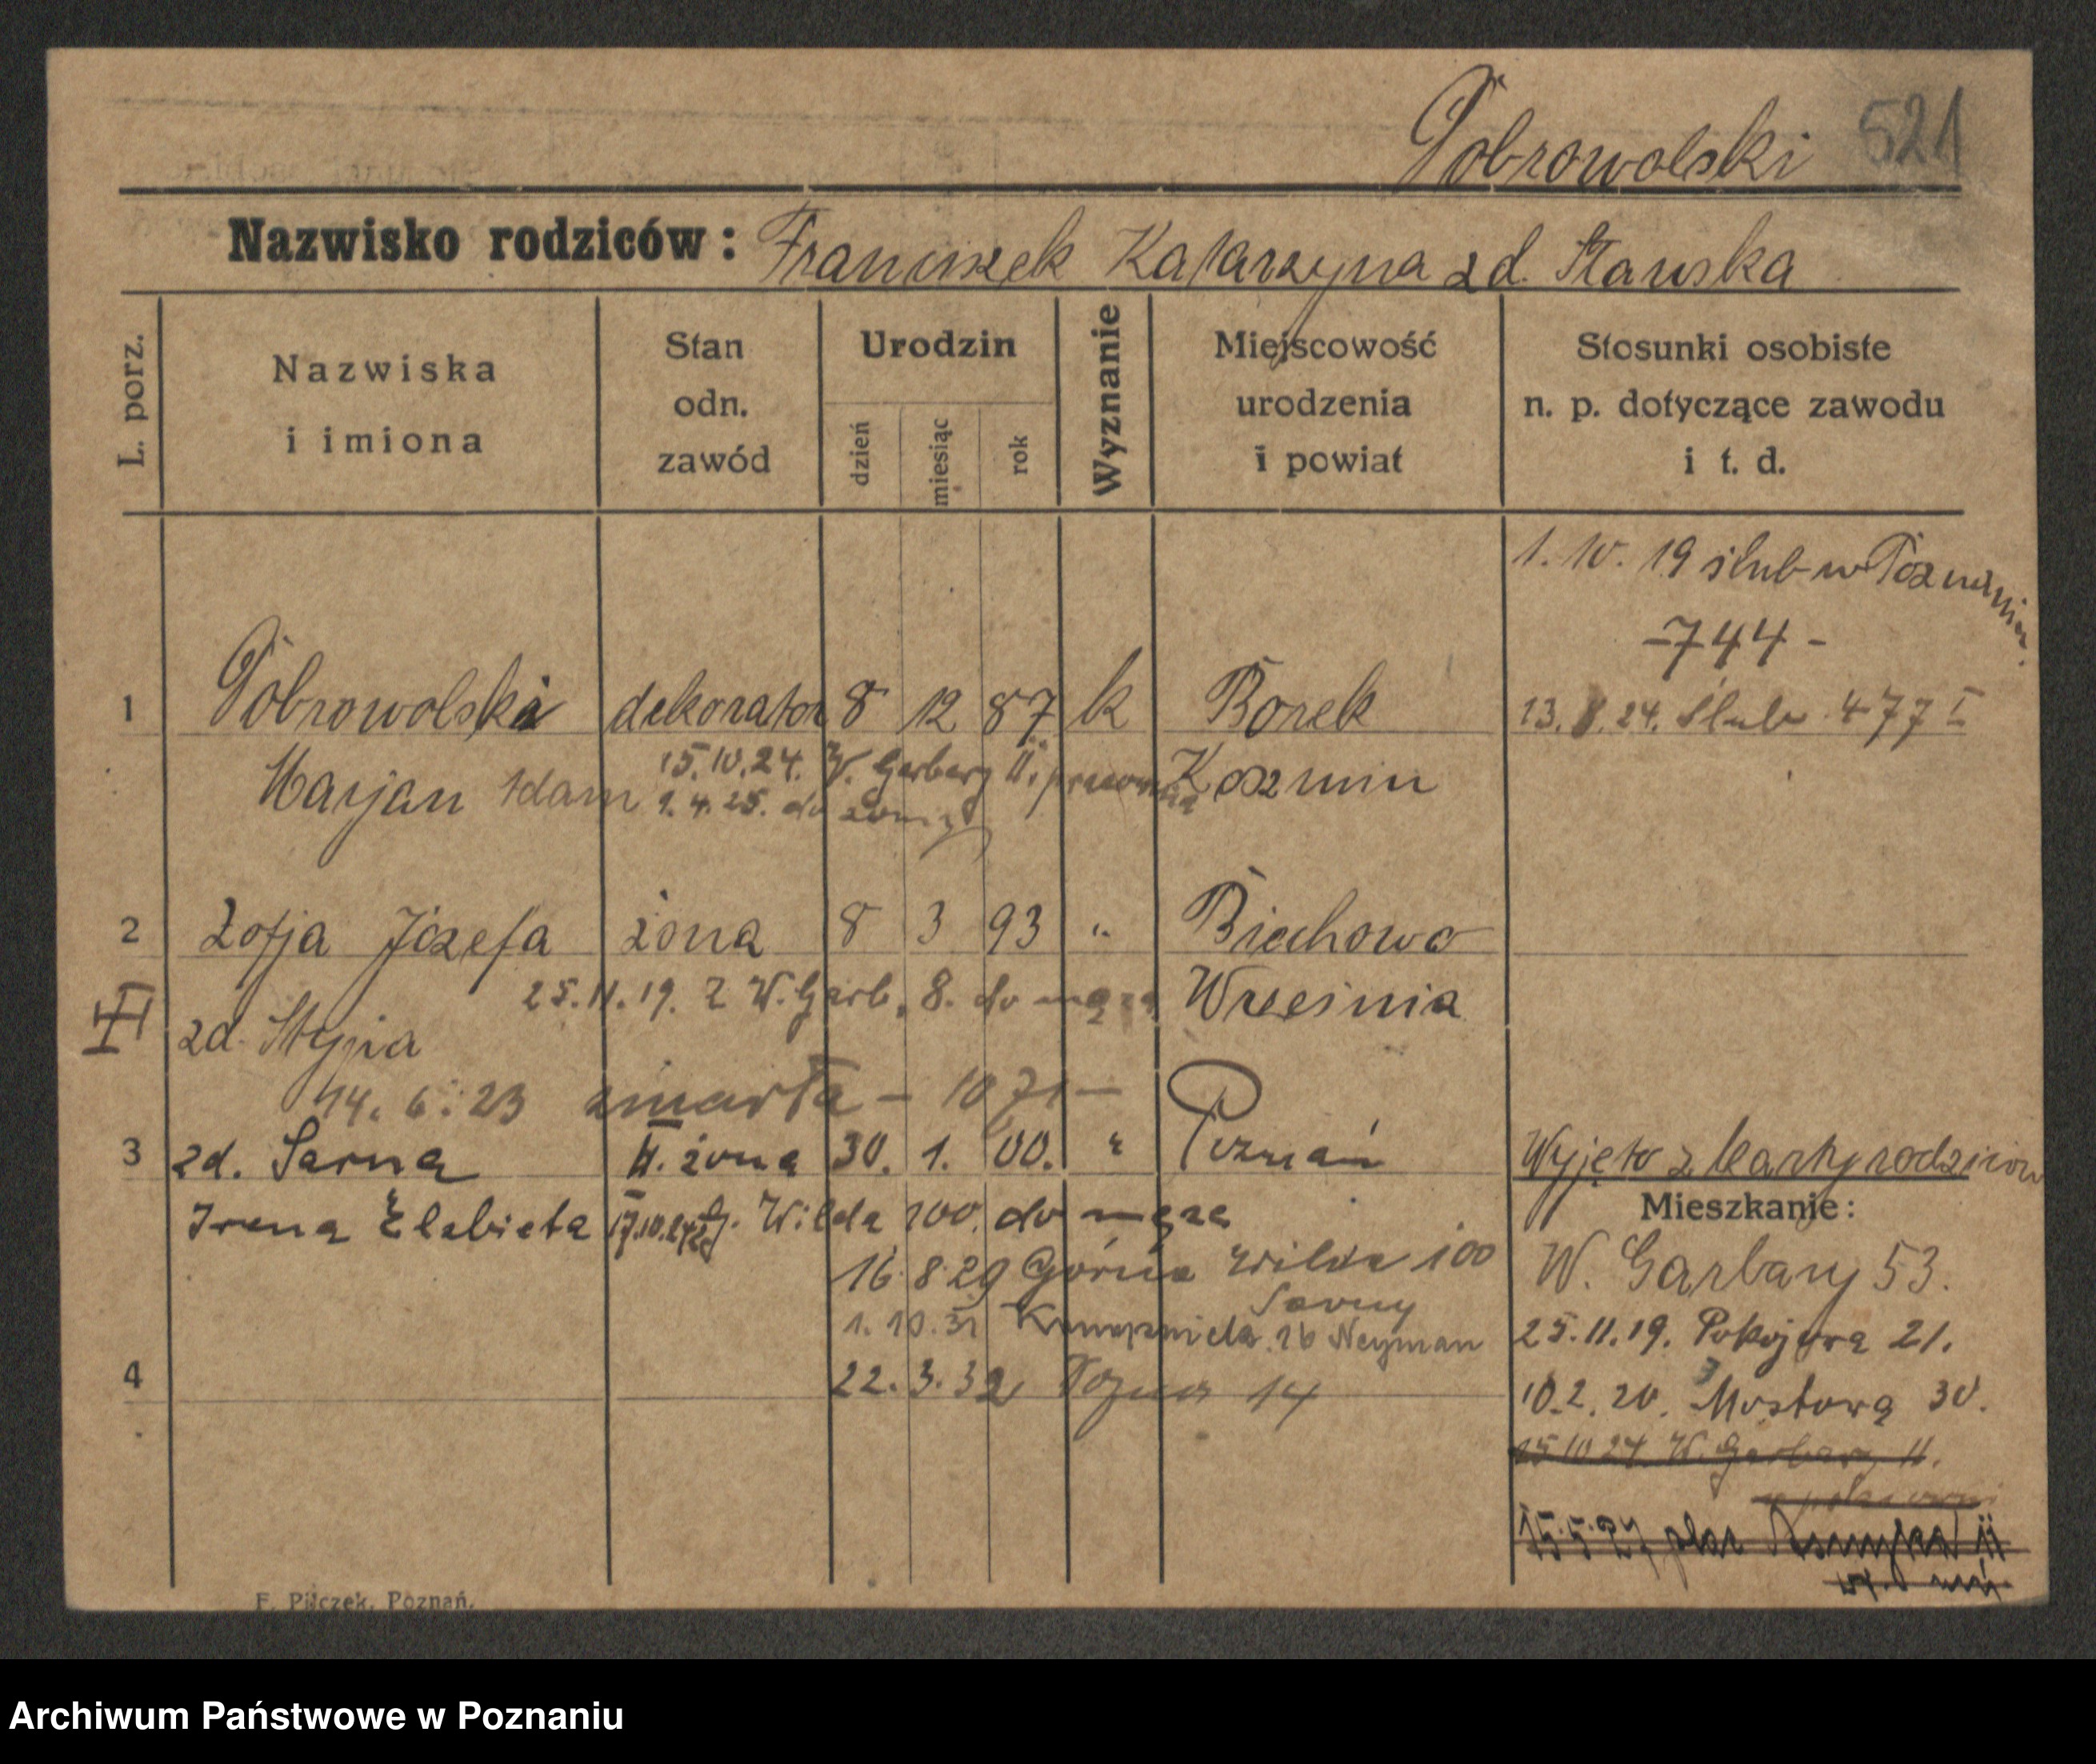 Dobrowolski 521
Nazwisko rodziców: Franciszek Katarzyna zd. Stawska
L. porz.
Nazwiska
i imiona
Stan
odn.
zawód
Urodzin
dzień
miesiąc
rok
Wyznanie
Miejscowość
urodzenia
i powiat
Stosunki osobiste
n. p. dotyczące zawodu
i t. d.
1. 10. 19 ślub w Poznaniu.
-744-
1 Dobrowolski dekorator 8 12 87 k Borek 13. 8. 24. Ślub 477 I
Marjan Adam 15.10.24. W. Garbary II. Koźmin
1. 4. 25. do żony
2 Zofja Józefa żona 8 3 93 " Biechowo
25.11.19. z W. Garb. 8. do męża Września
II zd. Stypia
14. 6. 23 zmarła - 1071 -
3 zd. Sarna II. żona 30. 1. 00. " Poznań Wyjęto z karty rodziców
Irena Elżbieta 17.10.24 z G. Wilda 100. do męża
Mieszkanie:
16.8.29 Górna Wilda 100
Sarny
W. Garbary 53.
1. 10. 31 16 Neyman
25.11.19. Pokojowa 21.
4 22. 3. 32 14
10.2.20. Mostowa 30.
15 10 24 W. Garbary 11.
15.5.27 plac
F. Pilczek, Poznań.
Archiwum Państwowe w Poznaniu